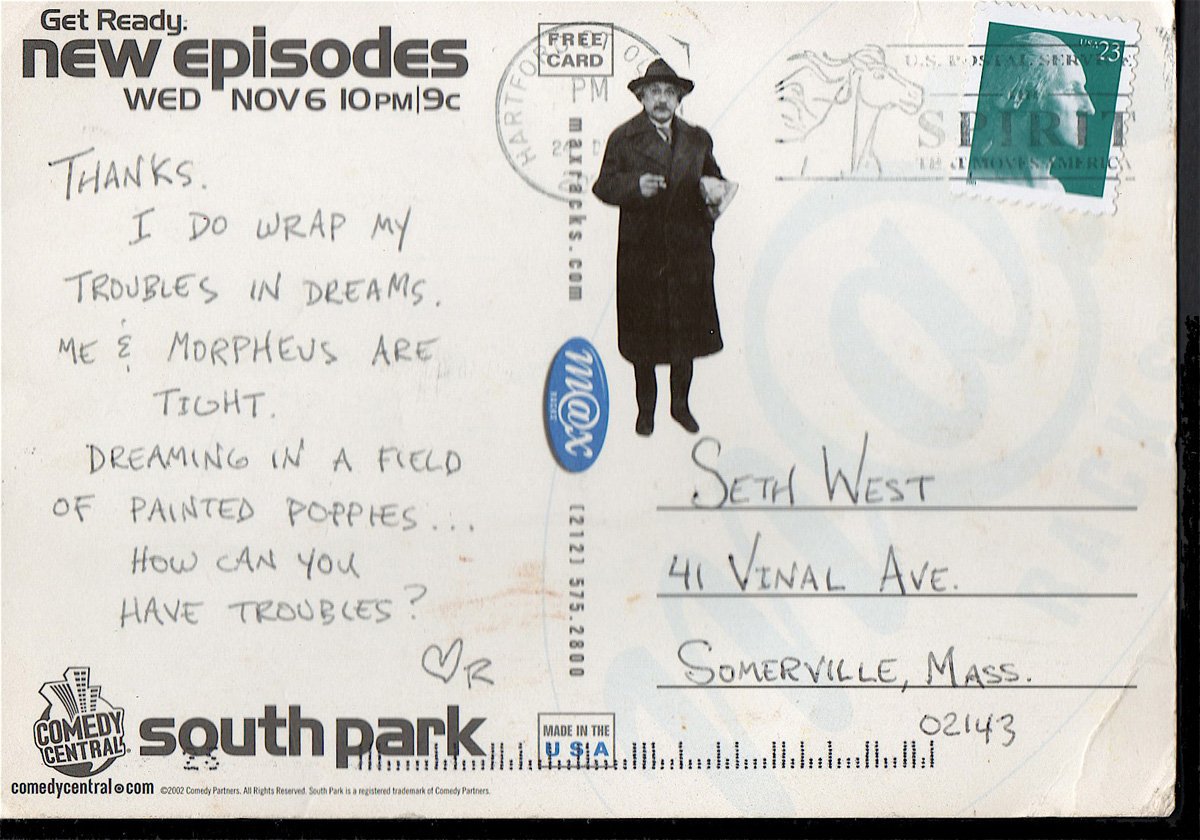 Get Ready:
new episodes
WED NOV 6 10PM|9C
THANKS.
I DO WRAP MY
TROUBLES IN DREAMS.
ME & MORPHEUS ARE
TIGHT.
DREAMING IN A FIELD
OF PAINTED POPPIES...
HOW CAN YOU
HAVE TROUBLES?
♡R
COMEDY
CENTRAL
south park
23
comedycentral.com ©2002 Comedy Partners. All Rights Reserved. South Park is a registered trademark of Comedy Partners.
FREE
CARD
HARTFORD
PM
maxracks.com
m@x
RACKS
(212) 575.2800
MADE IN THE
USA
USA 23
U.S. POSTAL SERVICE
SPIRIT
THAT MOVES AMERICA
SETH WEST
41 VINAL AVE.
SOMERVILLE, MASS.
02143
m@x
RACKS